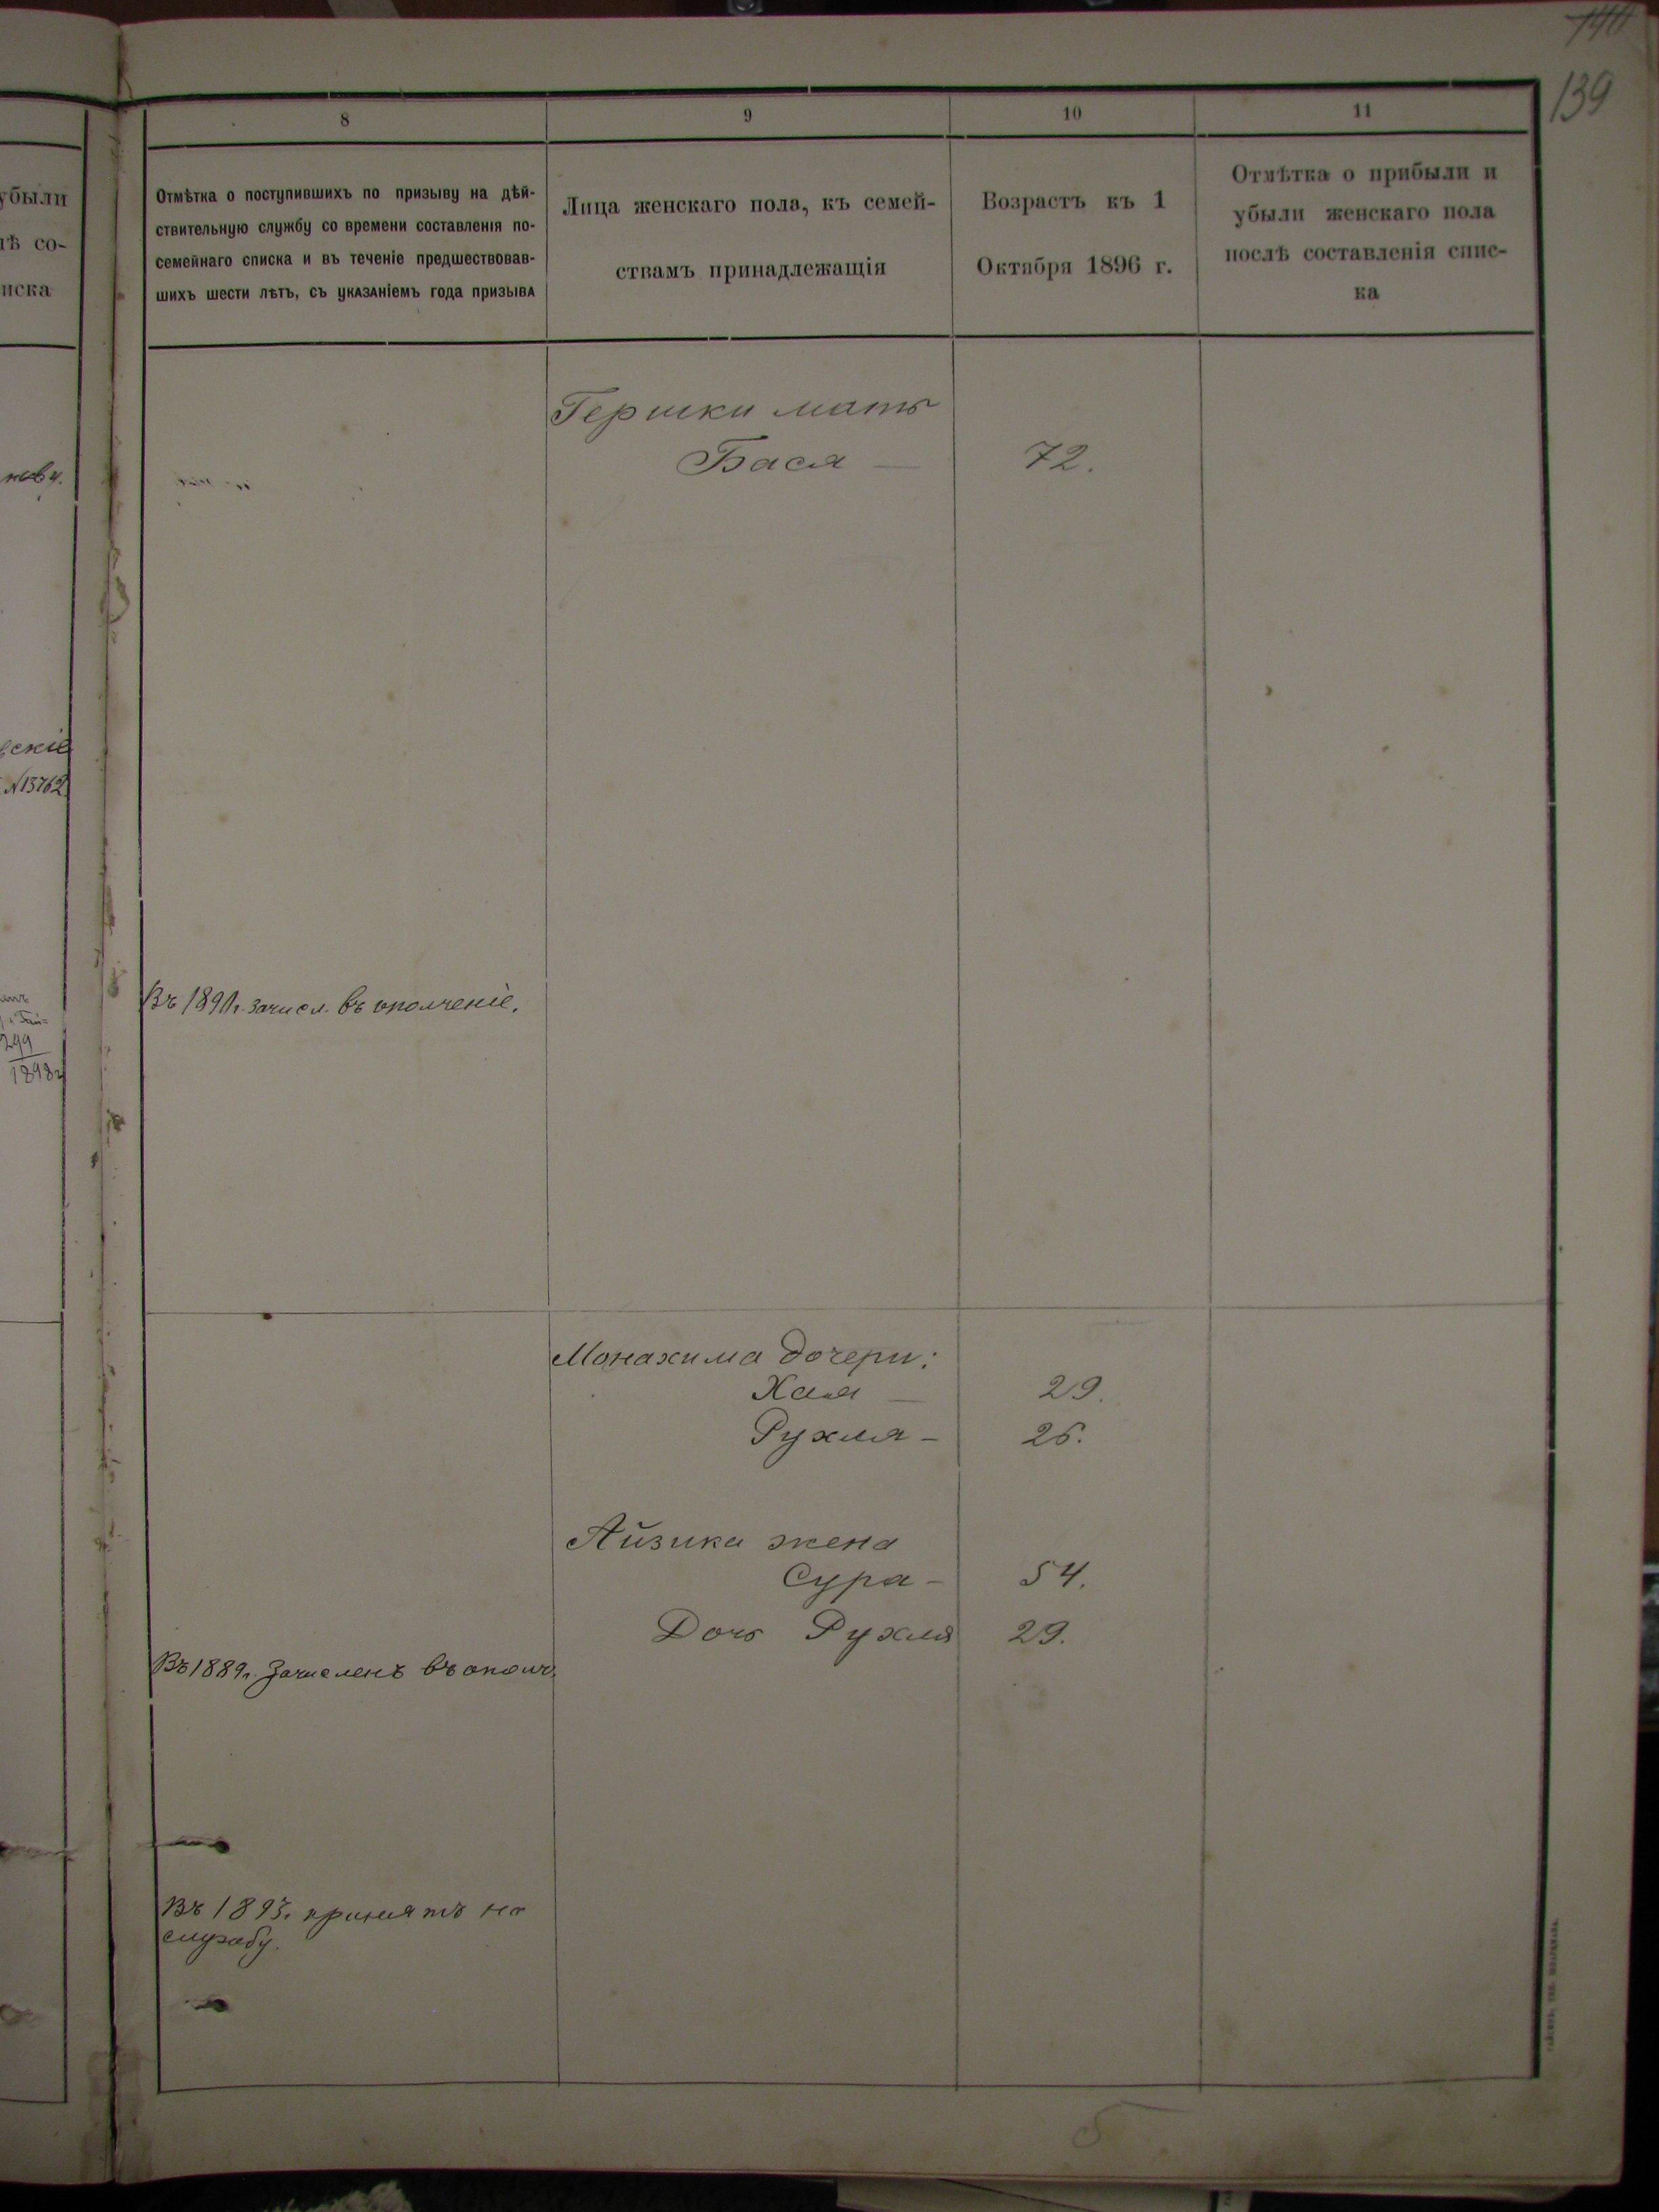 140
139
8
9
10
11
убыли
лѣ со-
иска
Отмѣтка о поступившихъ по призыву на дѣй-
ствительную службу со времени составленія по-
семейнаго списка и въ теченіе предшествовав-
шихъ шести лѣтъ, съ указаніемъ года призыва
Лица женскаго пола, къ семей-
ствамъ принадлежащія
Возрастъ къ 1
Октября 1896 г.
Отмѣтка о прибыли и
убыли женскаго пола
послѣ составленія спис-
ка
Гершки мать
Бася — 72.
скіе
№13762
299
1898г
Въ 1891г. зачисл. въ ополченіе.
Монахима дочери:
Хая — 29.
Рухля — 26.
Айзика жена
Сура — 54.
Дочь Рухля 29.
Въ 1889г. Зачисленъ въ ополч.
Въ 1893г. принятъ на
службу.